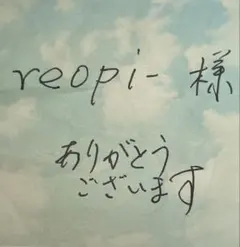 reopi- 様
ありがとう
ございます